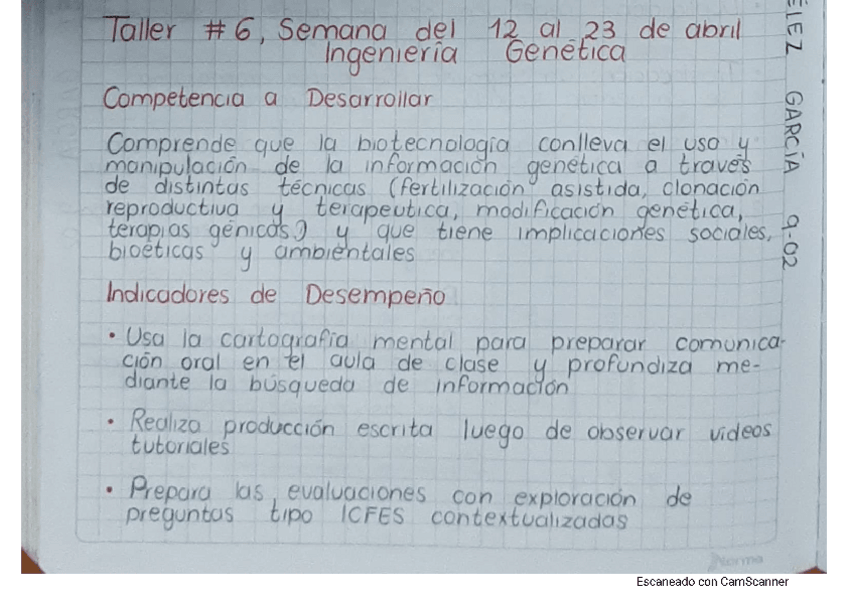 Taller # 6, Semana del 12 al 23 de abril
Ingeniería Genética
Competencia a Desarrollar
Comprende que la biotecnología conlleva el uso y
manipulación de la información genética a través
de distintas técnicas (fertilización asistida, clonación
reproductiva y terapeutica, modificación genética,
terapias génicas) y que tiene implicaciones sociales,
bioéticas y ambientales
Indicadores de Desempeño
• Usa la cartografía mental para preparar comunica-
ción oral en el aula de clase y profundiza me-
diante la búsqueda de información
• Realiza producción escrita luego de observar videos
tutoriales
• Prepara las evaluaciones con exploración de
preguntas tipo ICFES contextualizadas
GARCÍA 9-02
Norma
Escaneado con CamScanner